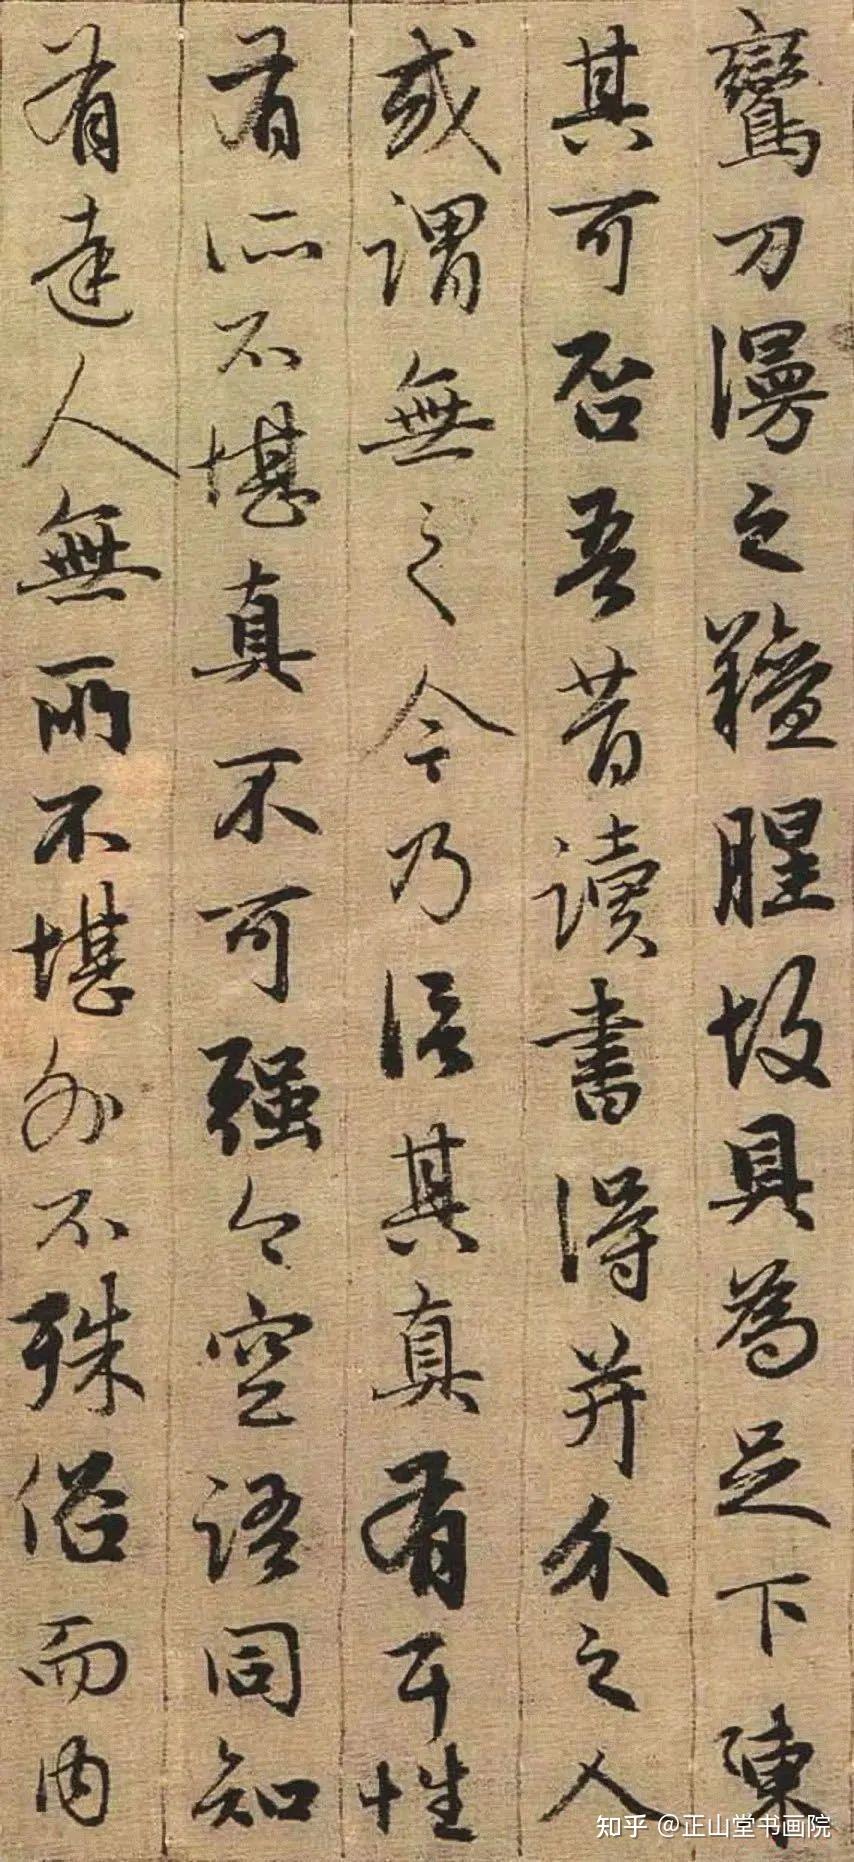 鸞刀漫之羶腥故具為足下陳
其可否吾昔讀書得并介之人
或謂無之今乃信其真有耳性
有所不堪真不可强今空語同知
有達人無所不堪外不殊俗而内
知乎 @正山堂书画院